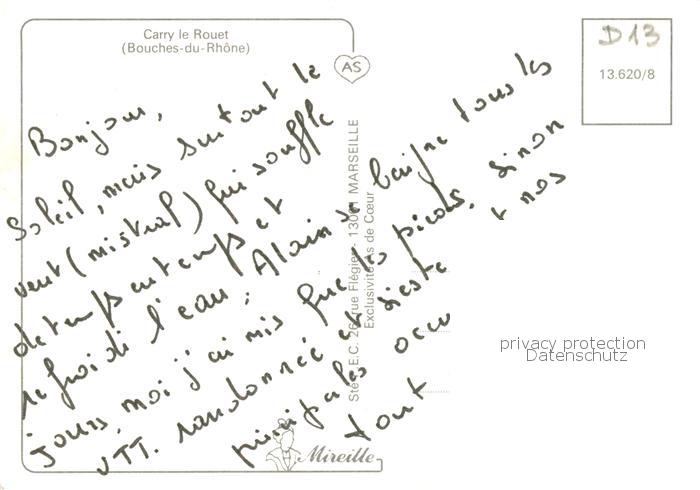 Carry le Rouet
(Bouches-du-Rhône)
AS
D13
13.620/8
Bonjour,
Soleil, mais surtout le
vent (mistral) qui souffle
de temps en temps et
refroidi l'eau; Alain se baigne tous les
jours, moi j'ai mis que les pieds, sinon
VTT. randonnée et sieste + nos
principales occu
tout
Sté E.C. 26, rue Flégier - 13001 MARSEILLE
Exclusivité As de Cœur
Mireille
privacy protection
Datenschutz